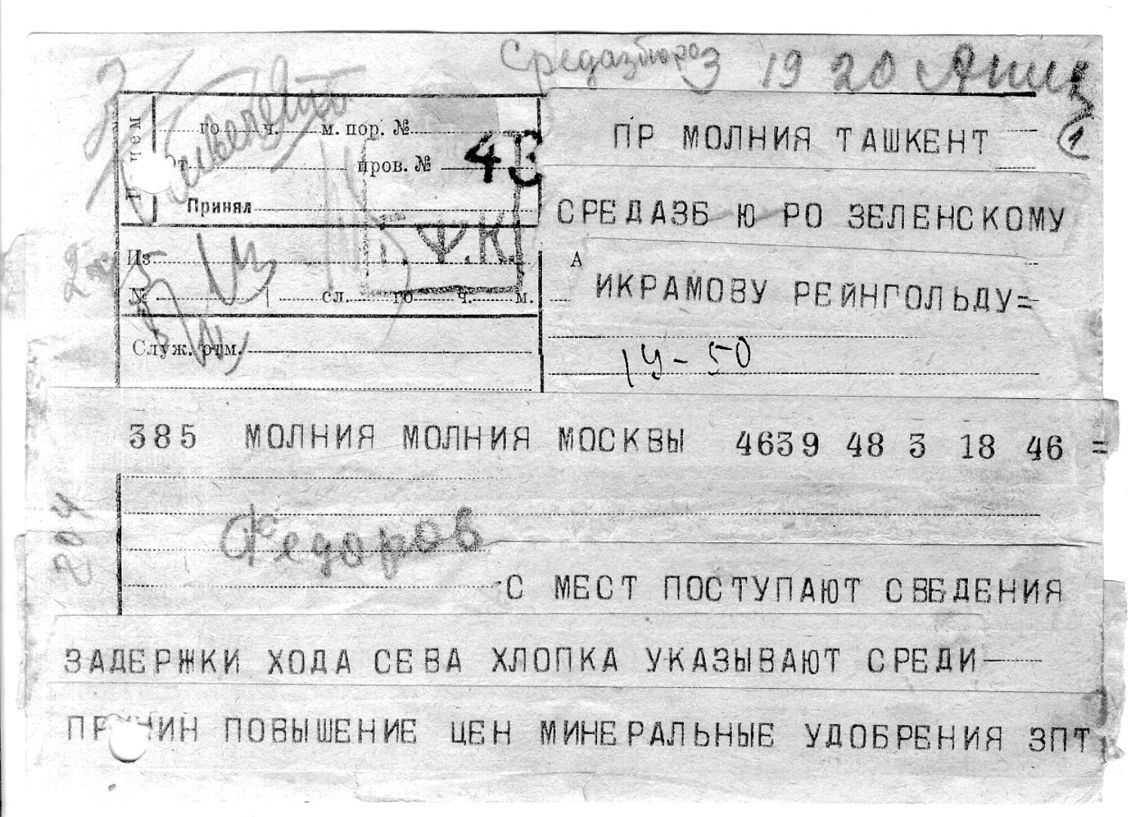 Средазбюро 3 19 20
го ч. м. пор. №
ПР МОЛНИЯ ТАШКЕНТ
1
От пров. № 4
Принял
СРЕДАЗБ Ю РО ЗЕЛЕНСКОМУ
Ф.К.
Из А
ИКРАМОВУ РЕЙНГОЛЬДУ=
№ сл. го ч. м.
Служ. отм.
14-50
385 МОЛНИЯ МОЛНИЯ МОСКВЫ 4639 48 3 18 46 =
204
Федоров
С МЕСТ ПОСТУПАЮТ СВЕДЕНИЯ
ЗАДЕРЖКИ ХОДА СЕВА ХЛОПКА УКАЗЫВАЮТ СРЕДИ
ПРИЧИН ПОВЫШЕНИЕ ЦЕН МИНЕРАЛЬНЫЕ УДОБРЕНИЯ ЗПТ